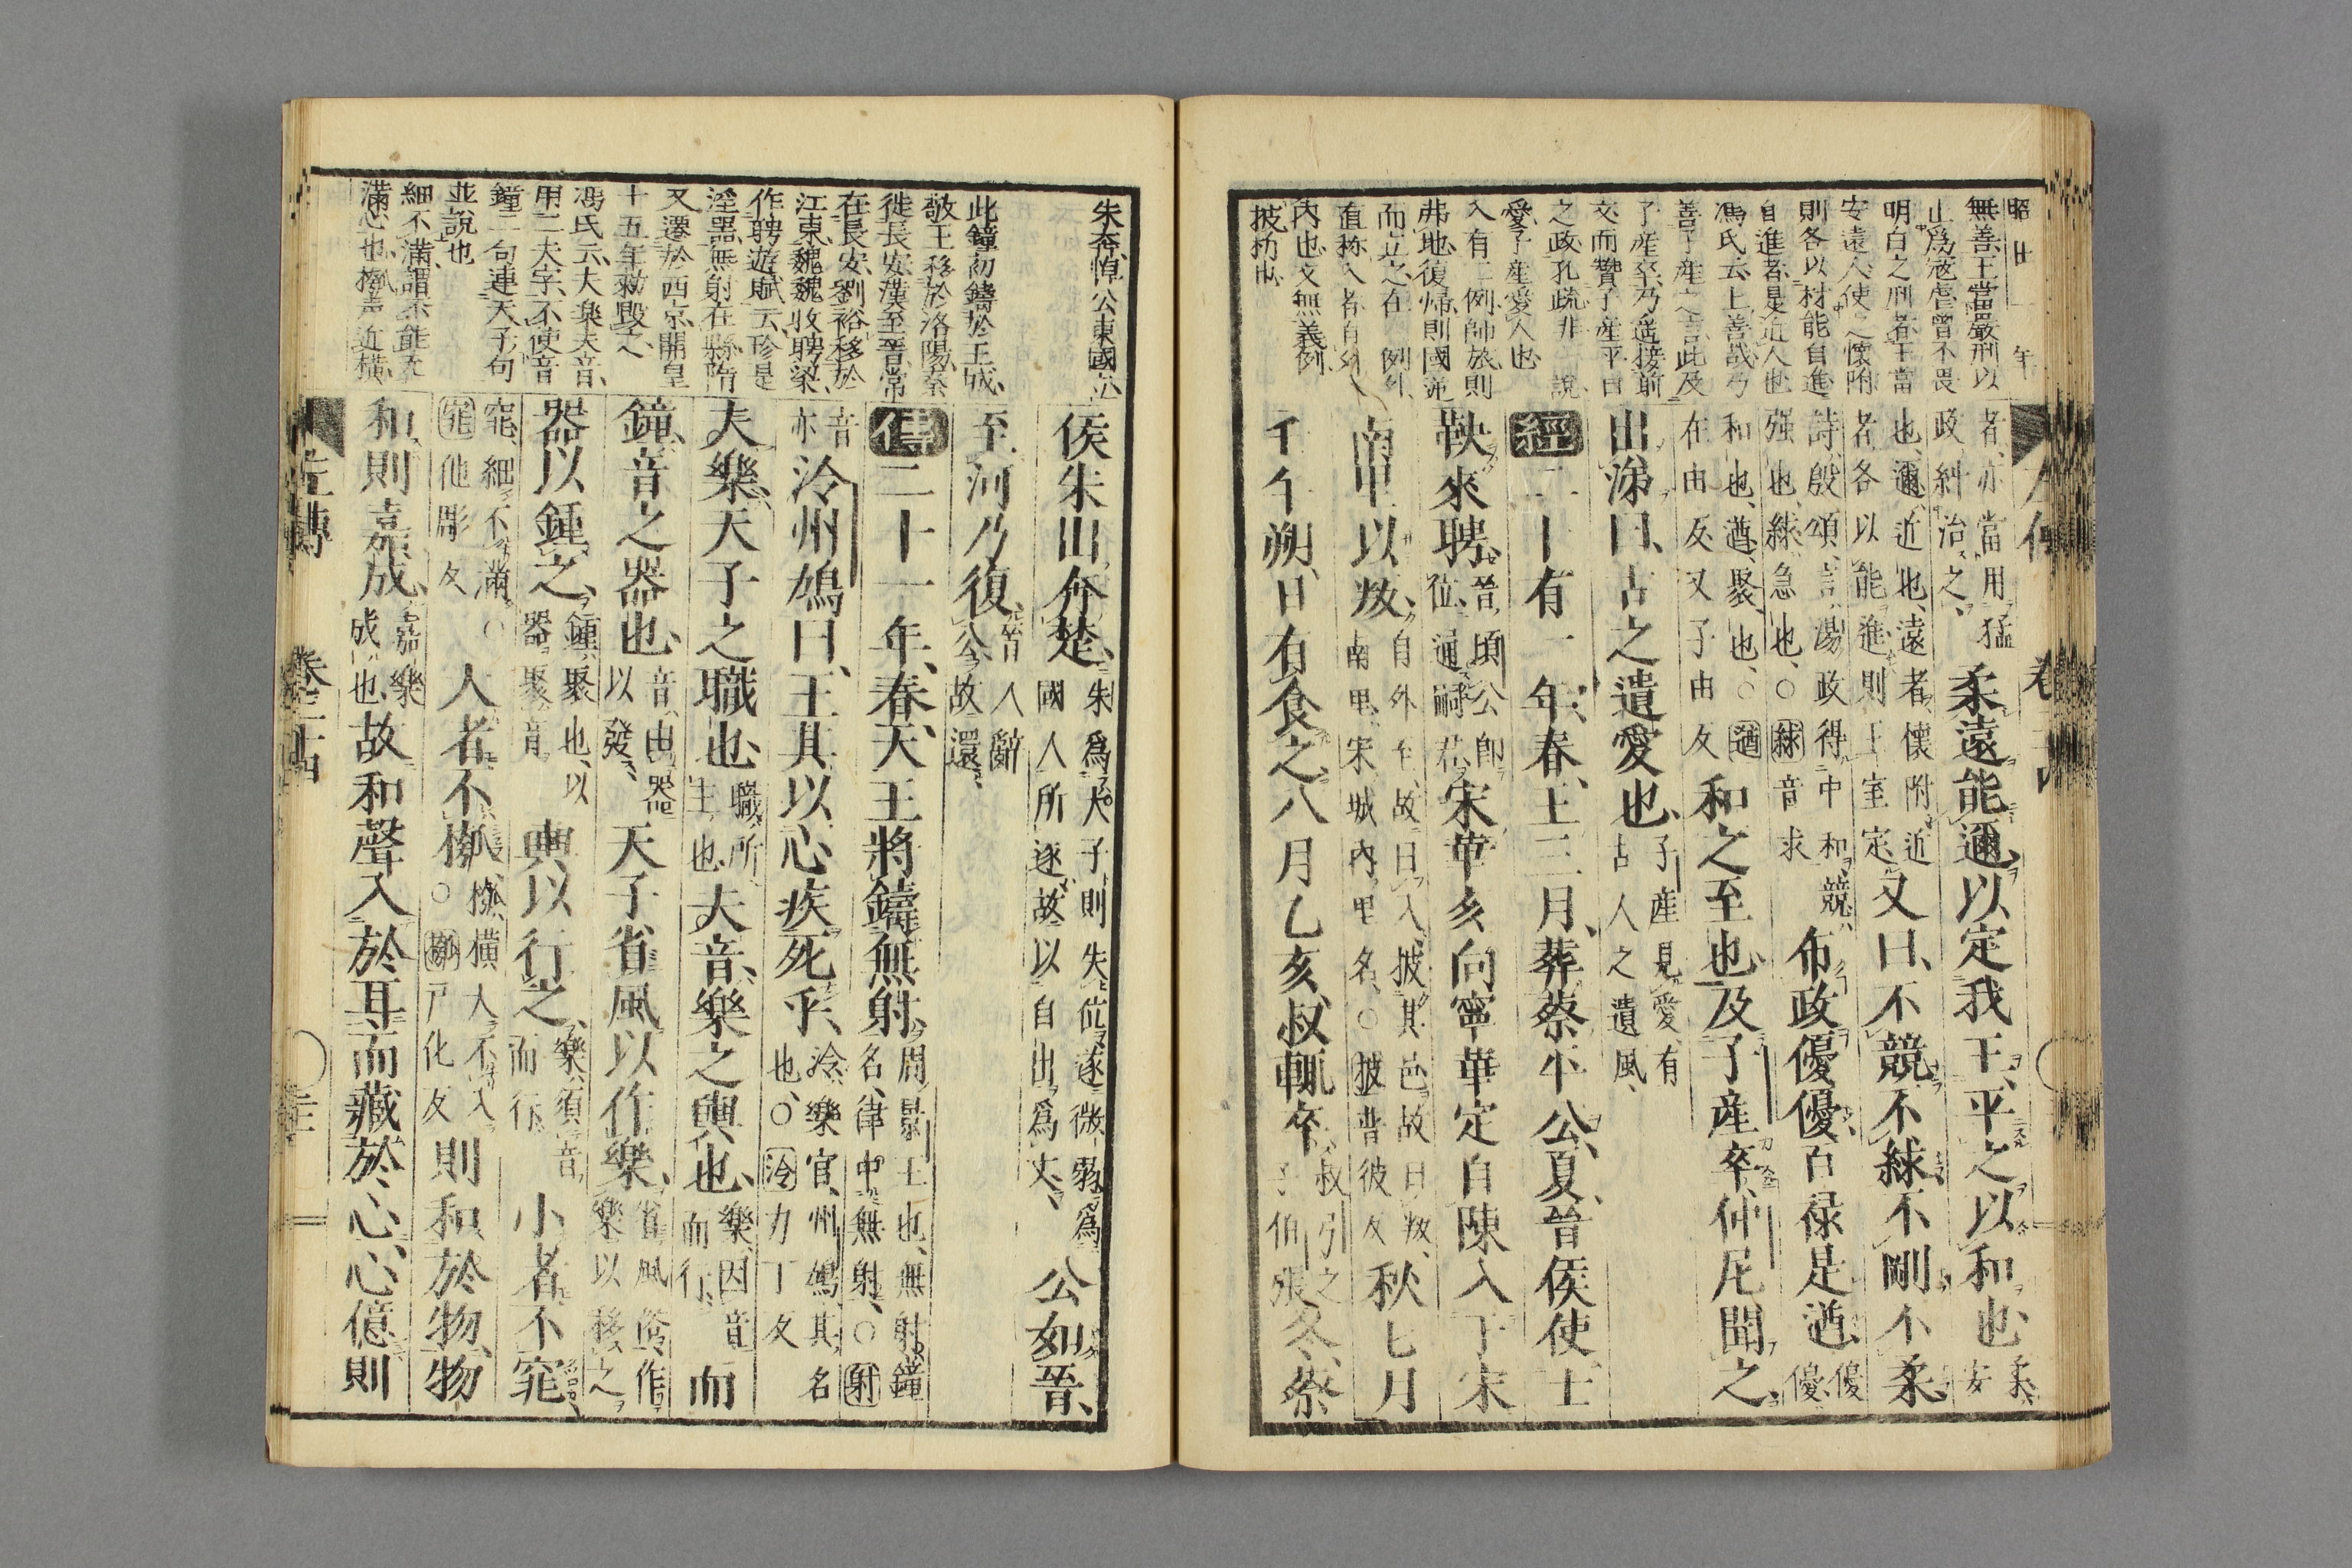 昭廿
年
無善王當嚴刑以
止為寇虐曾不畏
明白之刑者王當
安遠人使之懷附
則各以材能自進
自進者是近人也
馮氏云上善哉乃
善子產之言此及
子產卒乃遙接前
交而贊子產平日
之政孔疏非
說
愛子產愛人也
入有二例師旅則
弗地復歸則國逆
而立之在例外
直稱入者自外入
內也文無義例
披枋也
者亦當用猛
政糾治之
柔遠能邇以定我王平之以和也
柔
安
也邇近也遠者懷附近
者各以能進則王室定
又曰不競不絿不剛不柔
詩殷頌言湯政得中和競
强也絿急也○絿音求
布政優優百祿是遒
優
優
和也遒聚也○遒
在由反又子由反
和之至也及子產卒仲尼聞之
出涕曰古之遺愛也
子產見愛有
古人之遺風
經二十有一年春王三月葬蔡平公夏晉侯使士
鞅來聘
晉頃公即
位通嗣君
宋華亥向寧華定自陳入于宋
南里以叛
自外至故曰入披其邑故曰叛
南里宋城內里名○披普彼反
秋七月
壬午朔日有食之八月乙亥叔輒卒
叔弓之
子伯張
冬蔡
朱奔悼公東國立
此鐘初鑄於王城
敬王移於洛陽秦
徙長安漢至晉常
在長安劉裕移於
江東魏魏收聘梁
作聘遊賦云珍是
淫器無射在縣隋
又遷於西京開皇
十五年敕毀之
馮氏云大樂夫音
用二夫字不使音
鐘二句連天子句
並說也
細不滿謂不能充
滿心也摦声近橫
侯朱出奔楚
朱爲大子則失位遂微弱爲
國人所逐故以自出爲文
公如晉
至河乃復
晉人辭
公故還
傳二十一年春天王將鑄無射
周景王也無射鐘
名律中無射○射
音
亦
泠州鳩曰王其以心疾死乎
泠樂官州鳩其名
也○泠力丁反
夫樂天子之職也
職所
主也
夫音樂之輿也
樂因音
而行
而
鐘音之器也
音由器
以發
天子省風以作樂
省風俗作
樂以移之
器以鍾之
鍾聚也以
器聚音
輿以行之
樂須音
而行
小者不窕
窕細不滿○
窕他彫反
大者不摦
摦橫大不入
○摦戶化反
則和於物物
和則嘉成
嘉樂
成也
故和聲入於耳而藏於心心億則
左傳
卷二十四